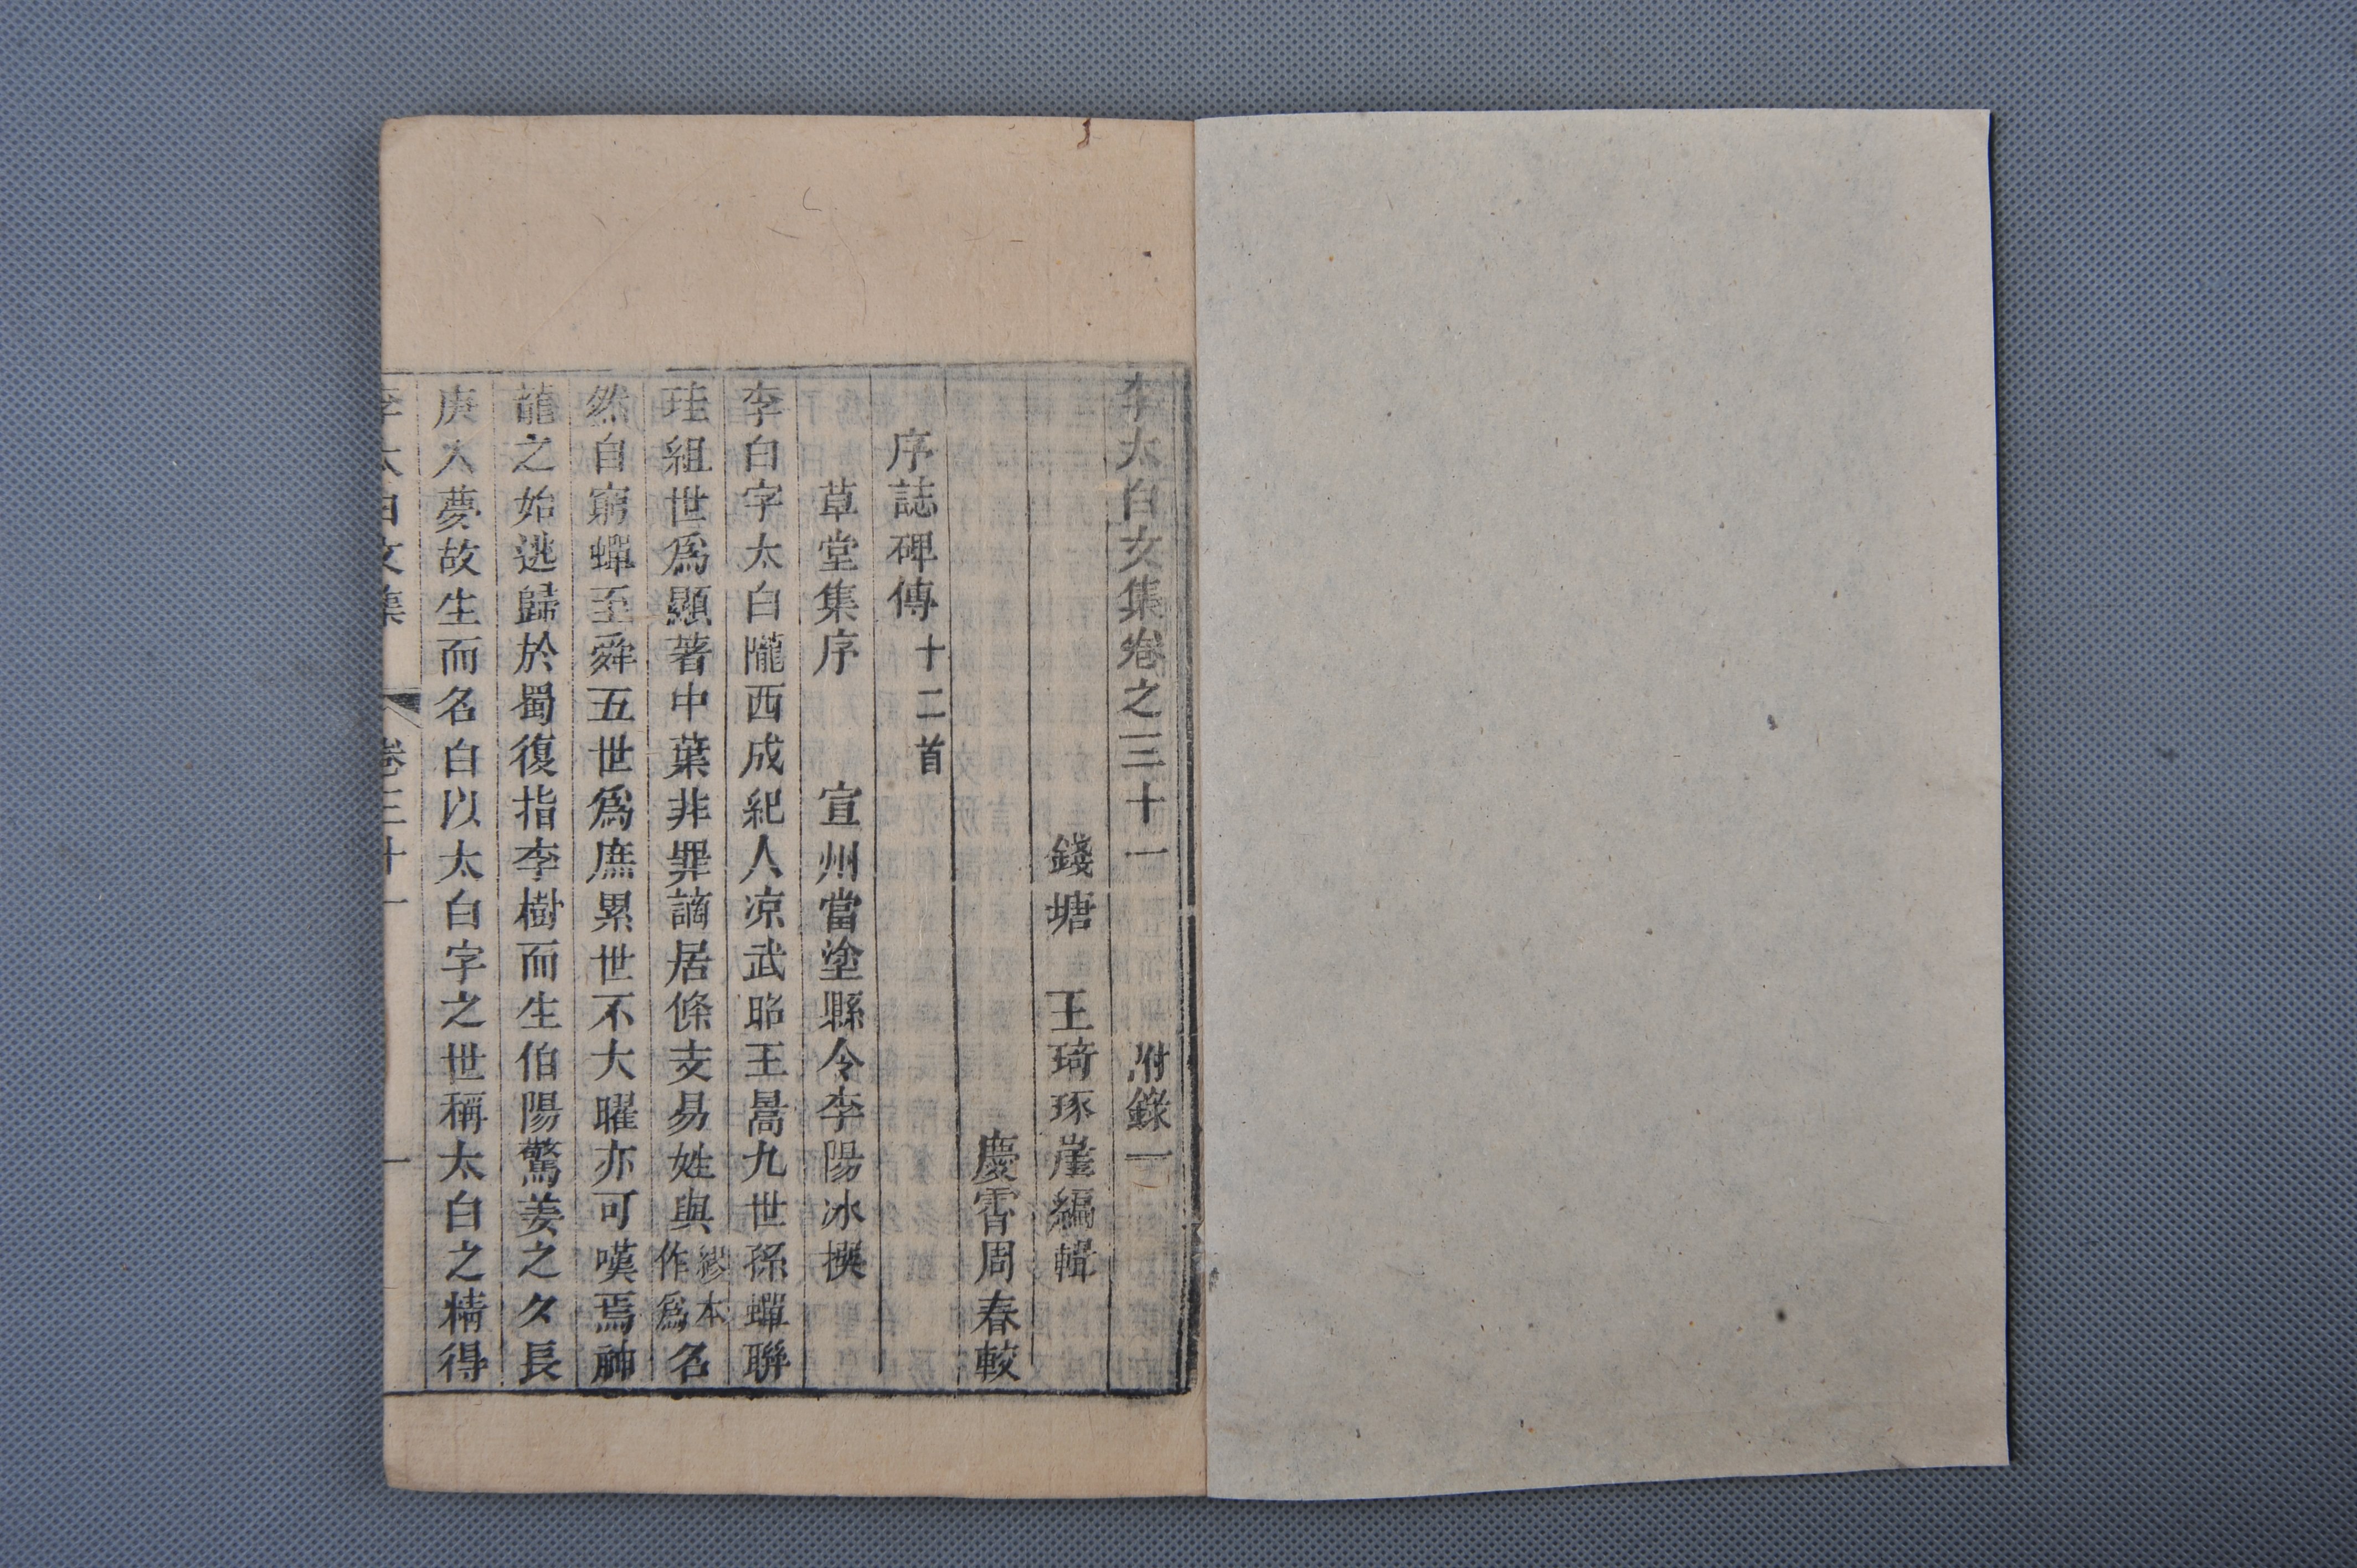 李太白文集卷之三十一 附錄一
錢塘 王琦琢崖編輯
慶霄周春較
序誌碑傳十二首
草堂集序 宣州當塗縣令李陽冰撰
李白字太白隴西成紀人凉武昭王暠九世孫蟬聯
珪組世爲顯著中葉非罪謫居條支易姓與繆本作爲名
然自窮蟬至舜五世爲庶累世不大曜亦可嘆焉神
龍之始逃歸於蜀復指李樹而生伯陽驚姜之夕長
庚入夢故生而名白以太白字之世稱太白之精得
李太白文集 卷三十一 一